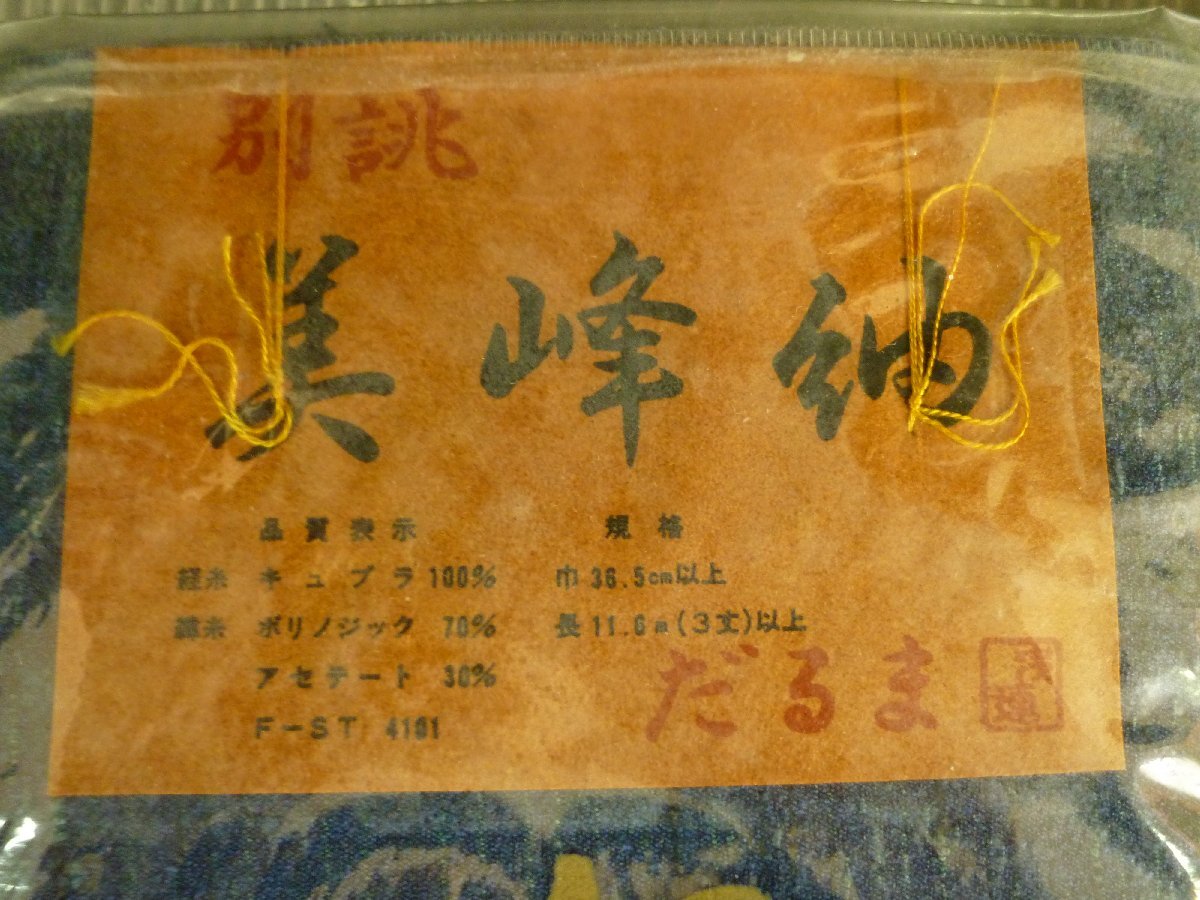 別誂
美峰紬
品質表示
経糸 キュプラ 100%
緯糸 ポリノジック 70%
アセテート 30%
F-ST 4101
規格
巾 36.5cm以上
長 11.6m(3丈)以上
だるま